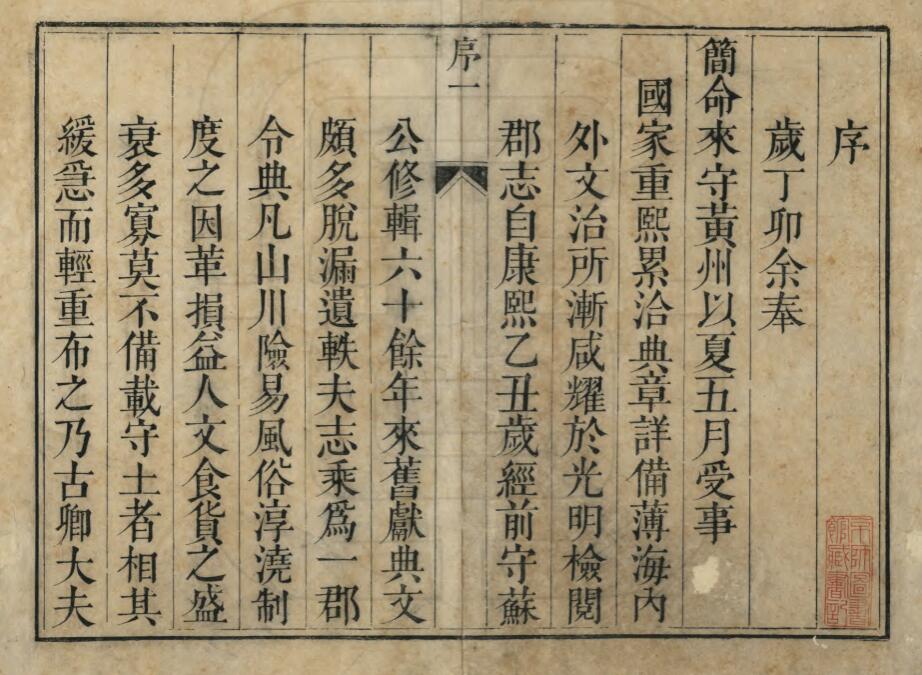 序
歲丁卯余奉
簡命來守黃州以夏五月受事
國家重熙累洽典章詳備薄海內
外文治所漸咸耀於光明檢閱
郡志自康熙乙丑歲經前守蘇
序一
公修輯六十餘年來舊獻典文
頗多脫漏遺軼夫志乘爲一郡
令典凡山川險易風俗淳澆制
度之因革損益人文食貨之盛
衰多寡莫不備載守土者相其
緩急而輕重布之乃古卿大夫